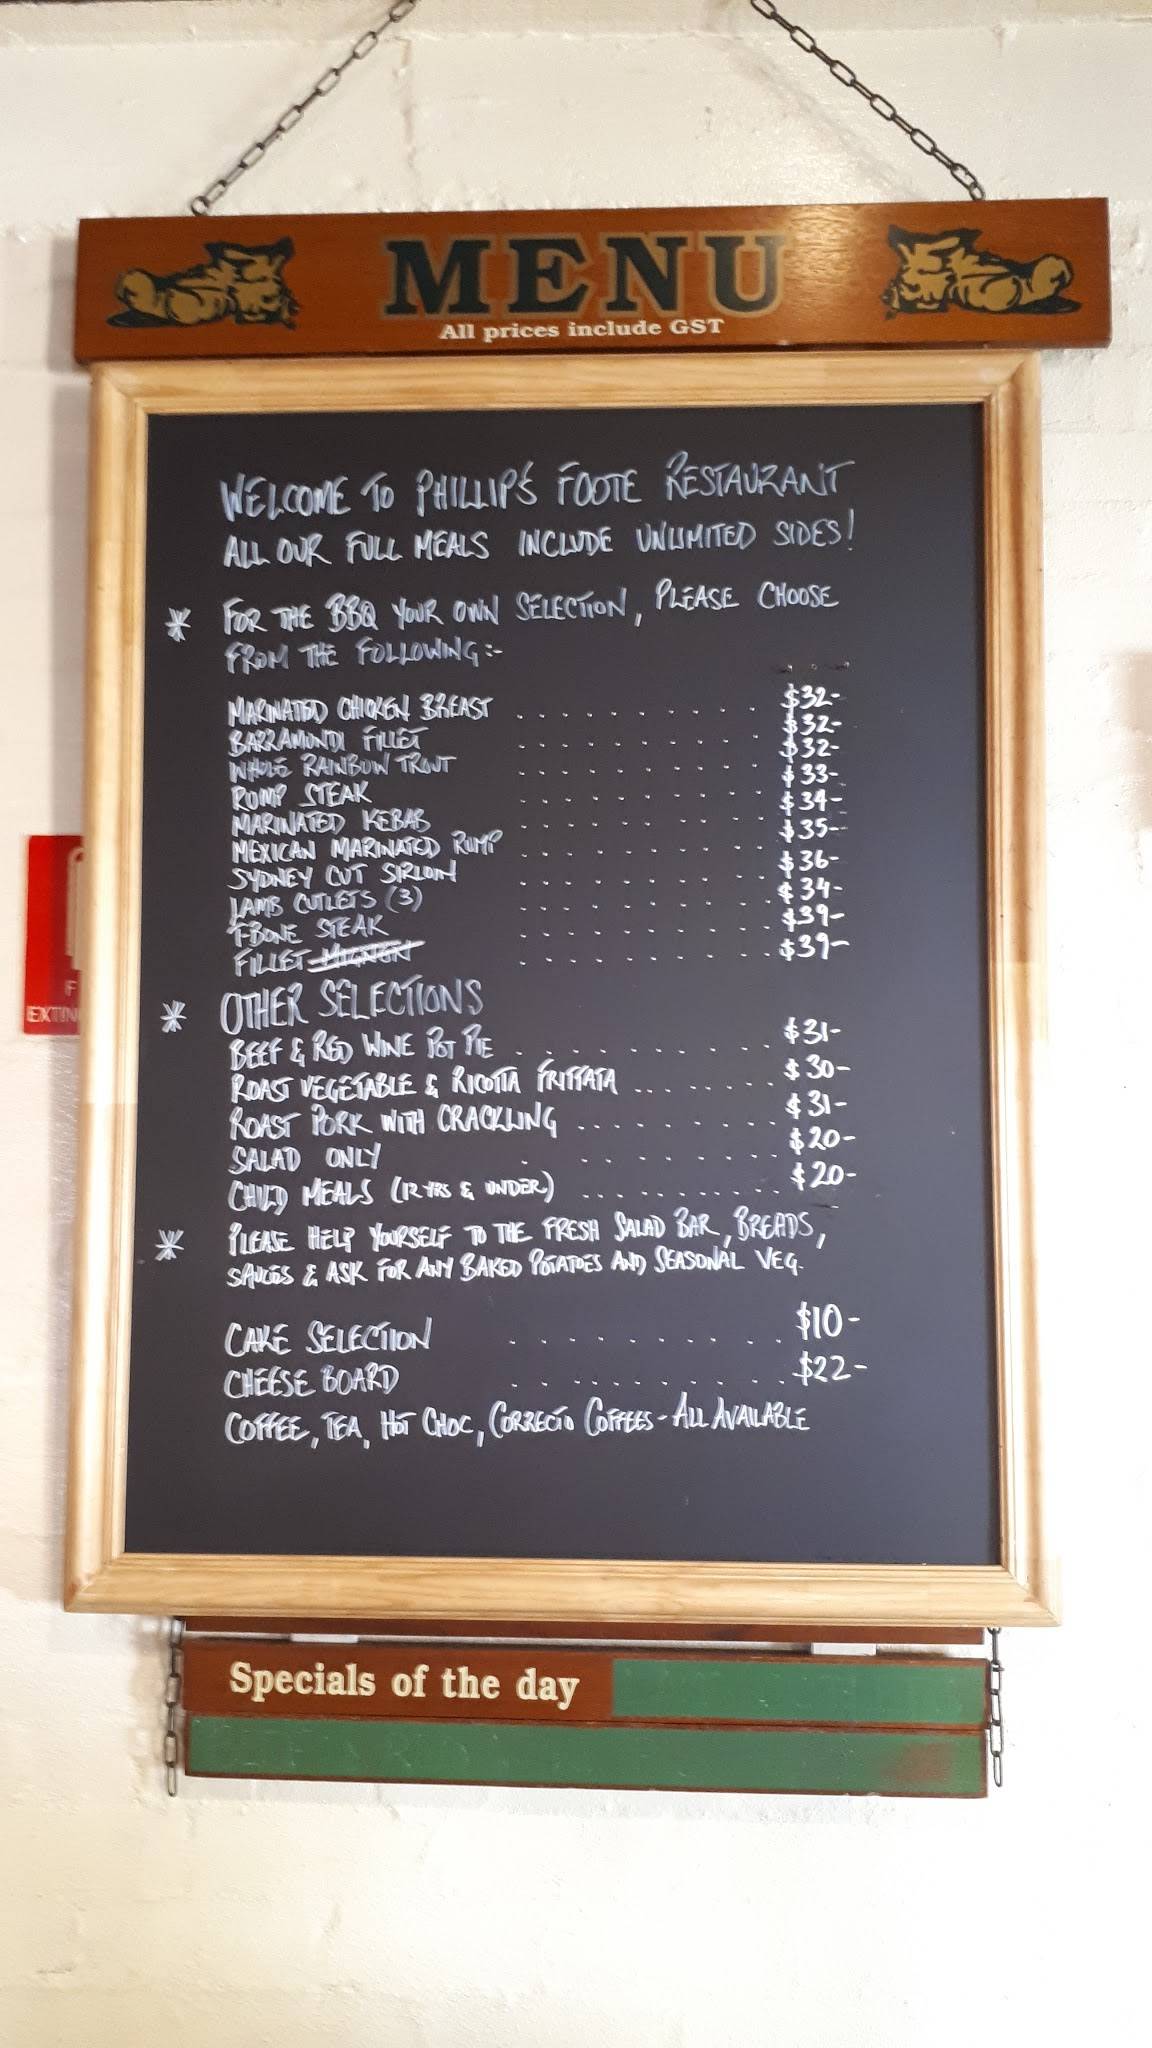 MENU
All prices include GST
WELCOME TO PHILLIP'S FOOTE RESTAURANT
ALL OUR FULL MEALS INCLUDE UNLIMITED SIDES!
* FOR THE BBQ YOUR OWN SELECTION, PLEASE CHOOSE
FROM THE FOLLOWING:-
MARINATED CHICKEN BREAST . . . . . . . . . . . $32-
BARRAMUNDI FILLET . . . . . . . . . . . $32-
WHOLE RAINBOW TROUT . . . . . . . . . . . $32-
RUMP STEAK . . . . . . . . . . . $33-
MARINATED KEBAB . . . . . . . . . . . $34-
MEXICAN MARINATED RUMP . . . . . . . . . . . $35-
SYDNEY CUT SIRLOIN . . . . . . . . . . . $36-
LAMB CUTLETS (3) . . . . . . . . . . . $34-
T-BONE STEAK . . . . . . . . . . . $39-
FILLET MIGNON . . . . . . . . . . . $39-
* OTHER SELECTIONS
BEEF & RED WINE POT PIE . . . . . . . . . . $31-
ROAST VEGETABLE & RICOTTA FRITTATA . . . . . . . . $30-
ROAST PORK WITH CRACKLING . . . . . . . . . $31-
SALAD ONLY . . . . . . . . . $20-
CHILD MEALS (12 YRS & UNDER) . . . . . . . . . . . $20-
* PLEASE HELP YOURSELF TO THE FRESH SALAD BAR, BREADS,
SAUCES & ASK FOR ANY BAKED POTATOES AND SEASONAL VEG.
CAKE SELECTION . . . . . . . . . . $10-
CHEESE BOARD . . . . . . . . . . $22-
COFFEE, TEA, HOT CHOC, CORRECTO COFFEES - ALL AVAILABLE
Specials of the day
F
EXTIN